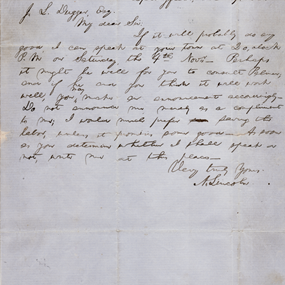 J. S. Dugger, Esq.
My dear Sir.
If it will probably do any
good I can speak at your town at Do, clock
P.M. on Saturday, the 4th Novr. Perhaps
it might be well for you to consult
and if he and you think it will work
well you may make an announcement accordingly.
Do not announce me merely as a compliment
to me; I would much prefer saving the
labor, unless it promises some good. As soon
as you determine whether I shall speak or
not, write me at this place.
Very truly Yours
A. Lincoln